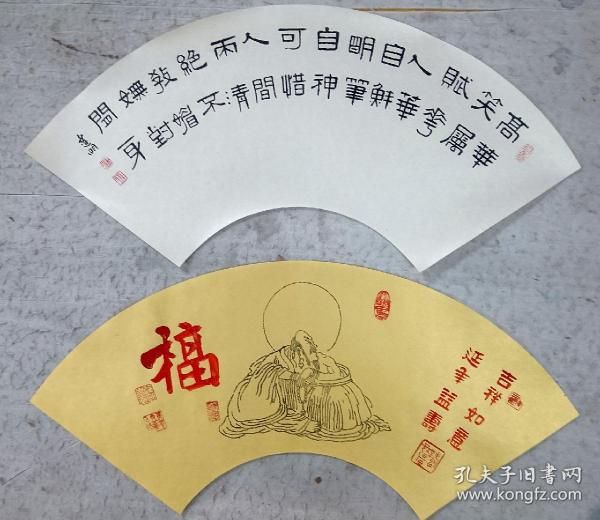 高華
笑屬
賦花
人華
自鮮
明筆
自神
可惜
人間
兩清
絕不
教媚
嫵對
閒身
吉祥如意
延年益壽
福
孔夫子旧书网
www.kongfz.com